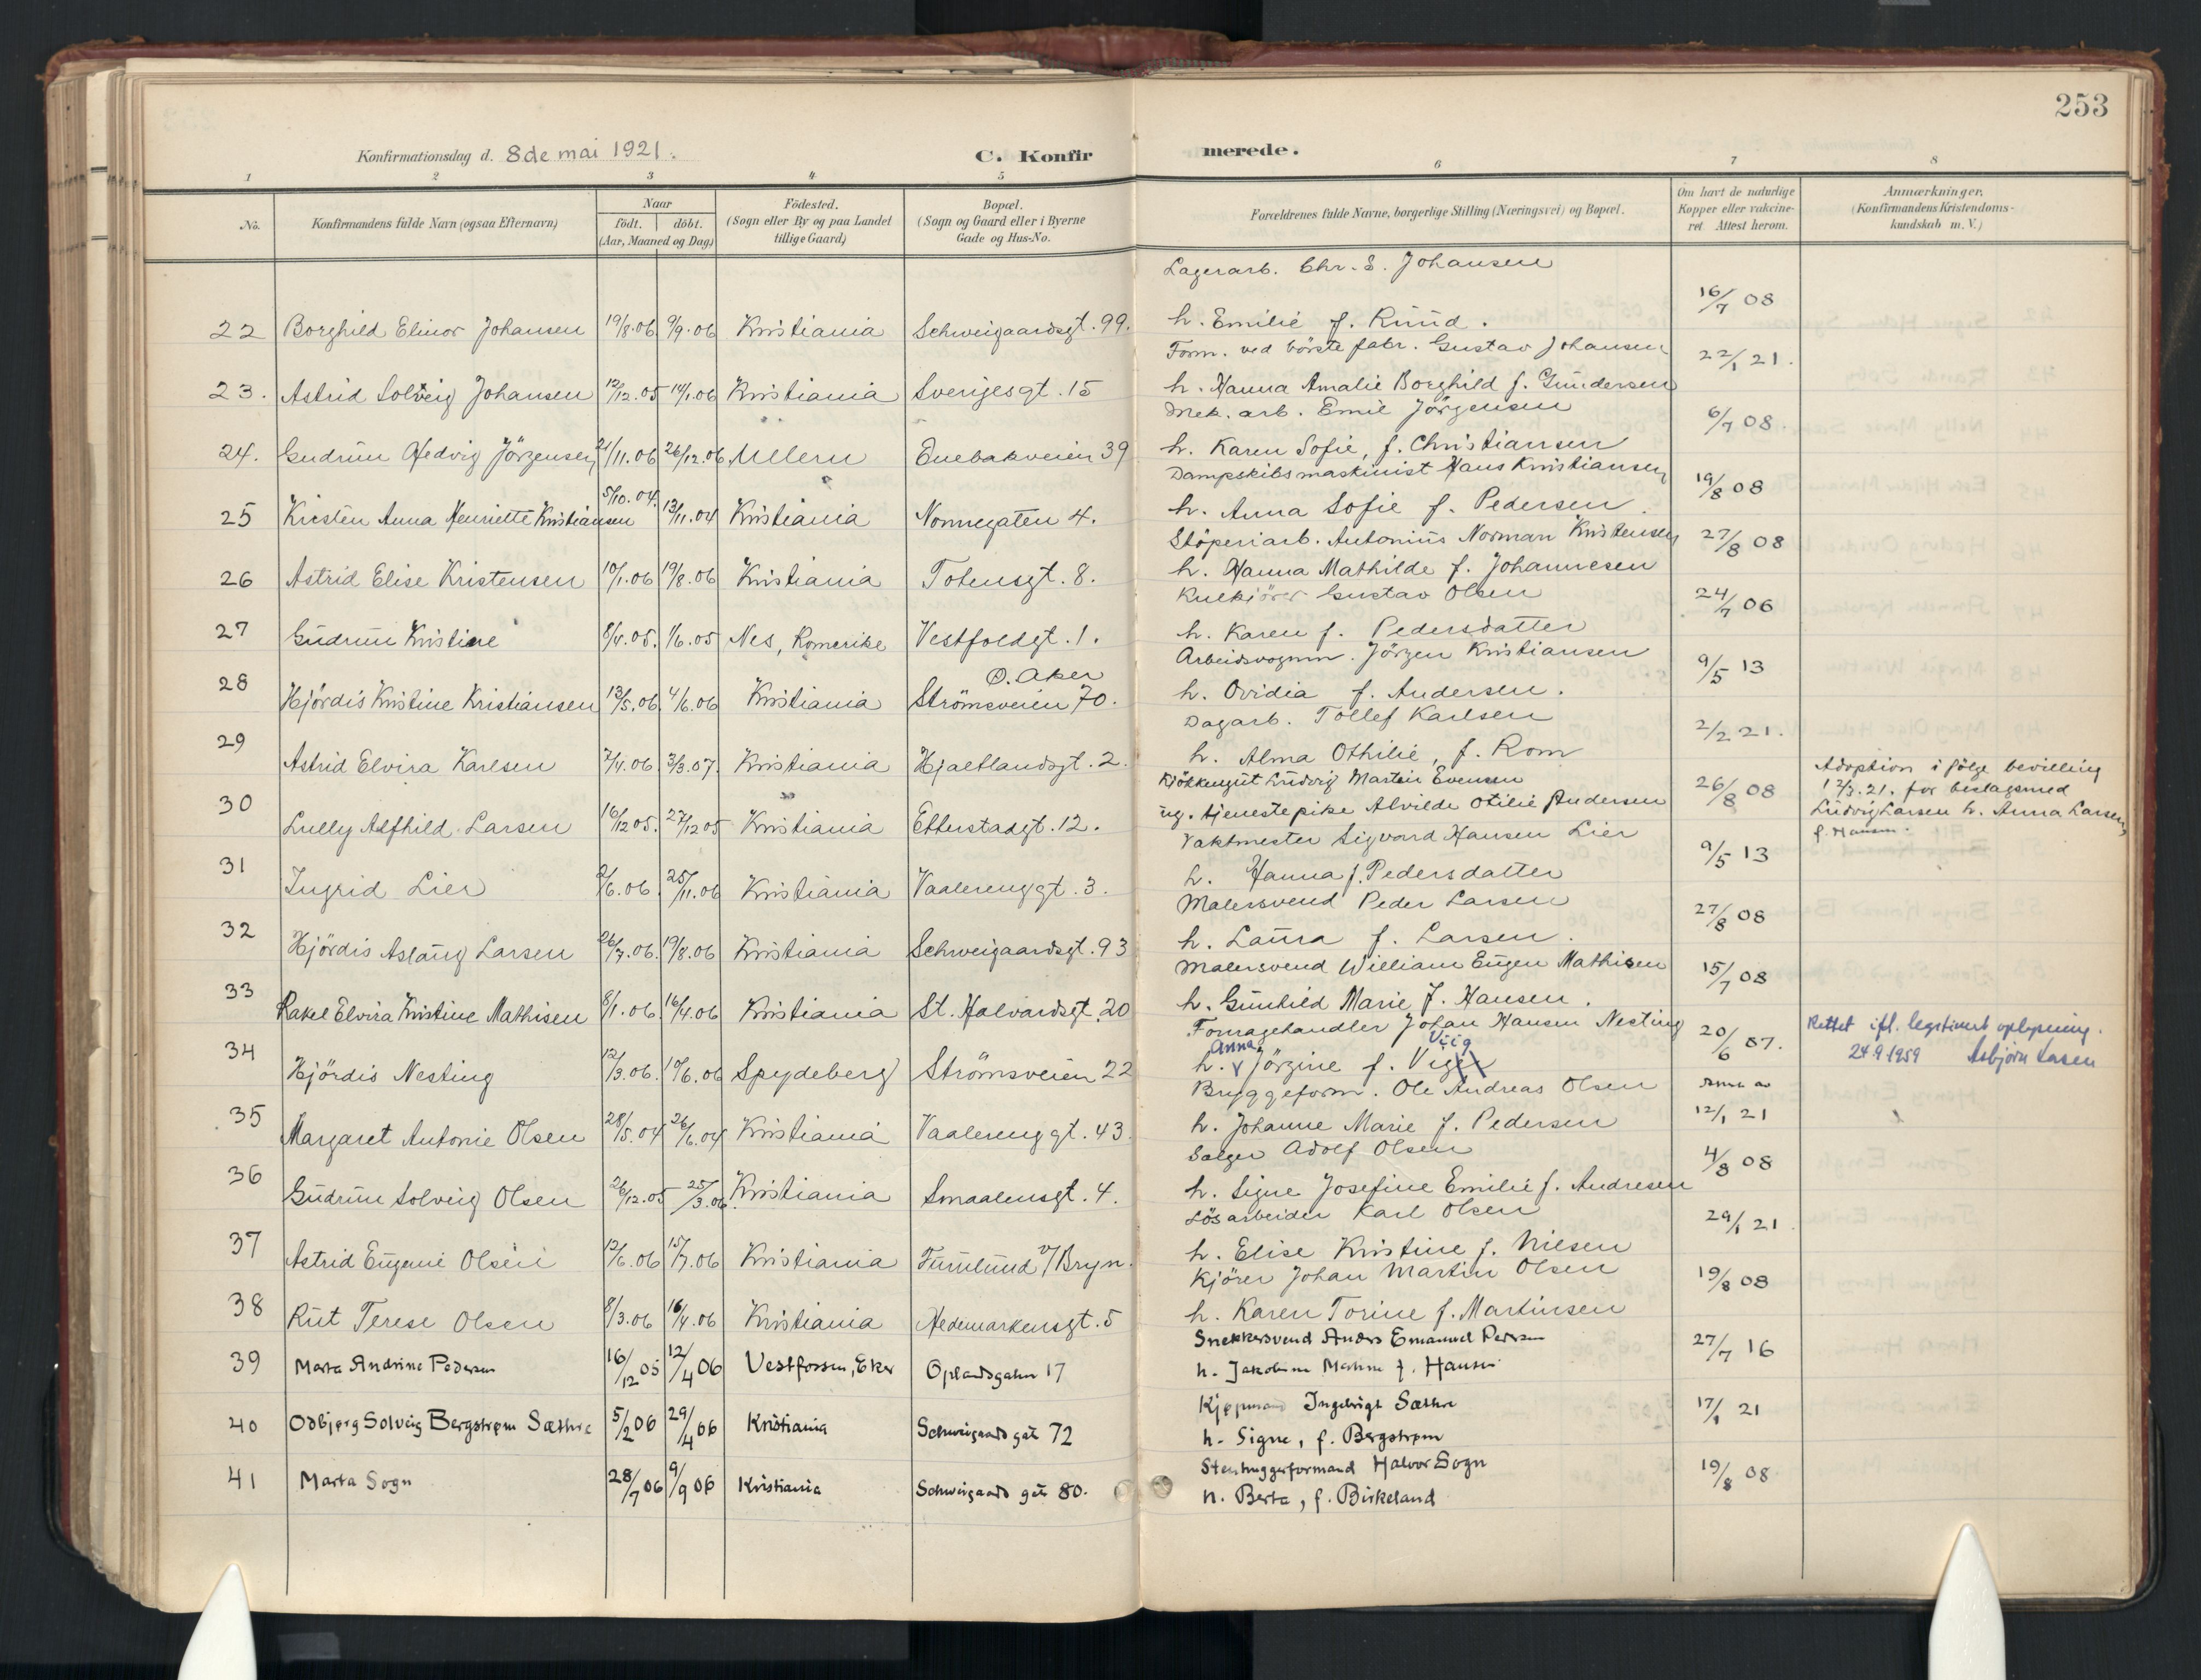 253
Konfirmationsdag d. 8de mai 1921.
C. Konfirmerede.
1 2 3 4 5 6 7 8
No.
Konfirmandens fulde Navn (ogsaa Efternavn)
Naar
födt. döbt.
(Aar, Maaned og Dag)
Födested.
(Sogn eller By og paa Landet
tillige Gaard)
Bopæl.
(Sogn og Gaard eller i Byerne
Gade og Hus-No.
Forældrenes fulde Navne, borgerlige Stilling (Næringsvei) og Bopæl.
Om havt de naturlige
Kopper eller vakcine-
ret. Attest herom.
Anmærkninger.
(Konfirmandens Kristendoms-
kundskab m. V.)
Lagerarb. Chr. E. Johansen
22 Borghild Elinor Johansen 19/8.06 9/9.06 Kristiania Schweigaardsgt. 99. h. Emilie f. Ruud. 16/7 08
Form. ved börstefabr. Gustav Johansen
23. Astrid Solveig Johansen 12/12.05 14/1.06 Kristiania Sverigesgt. 15 h. Hanna Amalie Borghild f. Gundersen 22/1 21.
Mek. arb. Emil Jörgensen
24. Gudrun Hedvig Jörgensen 21/11.06 26/12.06 Ullern Enebakveien 39 h. Karen Sofie, f. Christiansen 6/7 08.
Dampskibsmaskinist Hans Kristiansen
25 Kirsten Anna Henriette Kristiansen 5/10.04. 13/11.04 Kristiania Nonnegaten 4. h. Anna Sofie f. Pedersen. 19/8 08
Stöperiarb. Antonius Norman Kristensen
26 Astrid Elise Kristensen 10/1.06 19/8.06 Kristiania Totensgt. 8. h. Hanna Mathilde f. Johannesen 27/8 08
Kulkjörer Gustav Olsen
27 Gudrun Kristine 8/4.05. 1/6.05 Nes, Romerike Vestfoldgt. 1. h. Karen f. Pedersdatter 24/7 06
Arbeidsvognm. Jörgen Kristiansen
28 Hjördis Kristine Kristiansen 13/5.06 4/6.06 Kristiania Ö. Aker
Strömsveien 70. h. Ovidia f. Andersen. 9/5 13
Dagarb. Tollef Karlsen
29 Astrid Elvira Karlsen 7/4.06 3/3.07. Kristiania Hjaltlandsgt. 2. h. Alma Othilie, f. Rom 2/2 21.
Kjökkengut Ludvig Martin Evensen
30 Lully Alfhild Larsen 16/12 05. 27/12 05 Kristiania Etterstadgt. 12. ug. tjenestepike Alvilde Otilie Andersen 26/8 08
Adoption i fölge bevilling
12/3.21. for beslagsmed
Ludvig Larsen h. Anna Larsen,
f. Hansen.
Vaktmester Sigvard Hansen Lier
31 Ingrid Lier 2/6.06. 25/11.06 Kristiania Vaalerenggt. 3. h. Hanna f. Pedersdatter 9/5 13
Malersvend Peder Larsen
32 Hjördis Aslaug Larsen 26/7.06. 19/8.06 Kristiania Schweigaardsgt. 93 h. Laura f. Larsen. 27/8 08
Malersvend William Eugen Mathisen
33 Rakel Elvira Kristine Mathisen 8/1.06 16/4.06 Kristiania St. Halvardsgt. 20 h. Gunhild Marie f. Hansen. 15/7 08
Fouragehandler Johan Hansen Nesting
34 Hjördis Nesting 12/3.06. 10/6.06 Spydeberg Strömsveien 22 h. Anna Jörgine f. Viig 20/6 07.
Rettet ifl. legitimert oplysning.
24.9.1959 Asbjörn Lasen
Bryggeform. Ole Andreas Olsen
35 Margaret Antonie Olsen 28/5.04 26/6.04 Kristiania Vaalerenggt. 43. h. Johanne Marie f. Pedersen 12/1 21
Sælger Adolf Olsen
36 Gudrun Solveig Olsen 26/12.05 25/3.06. Kristiania Smaalensgt. 4. h. Signe Josefine Emilie f. Andresen 4/8 08
Lösarbeider Karl Olsen
37 Astrid Eugenie Olsen 12/6.06 15/7.06 Kristiania Furulund v/Bryn. h. Elise Kristine f. Nilsen 29/1 21
Kjörer Johan Martin Olsen
38 Rut Terese Olsen 8/3.06 16/4.06 Kristiania Hedemarkensgt. 5 h. Karen Torine f. Martinsen 19/8 08
Snekkersvend Anders Emanuel Pedersen
39 Marta Andrine Pedersen 16/12 05 12/4 06 Vestfossen, Eker Oplandsgaten 17 h. Jakobine Martine f. Hansen 27/7 16
Kjøpmand Ingebrigt Sæthre
40 Odbjørg Solveig Bergstrøm Sæthre 5/2 06 29/4 06 Kristiania Schweigaards gate 72 h. Signe, f. Bergstrøm 17/1 21
Stenhuggerformand Halvor Sogn
41 Marta Sogn 28/7 06 9/9 06 Kristiania Schweigaards gate 80. h. Berta, f. Birkeland 19/8 08